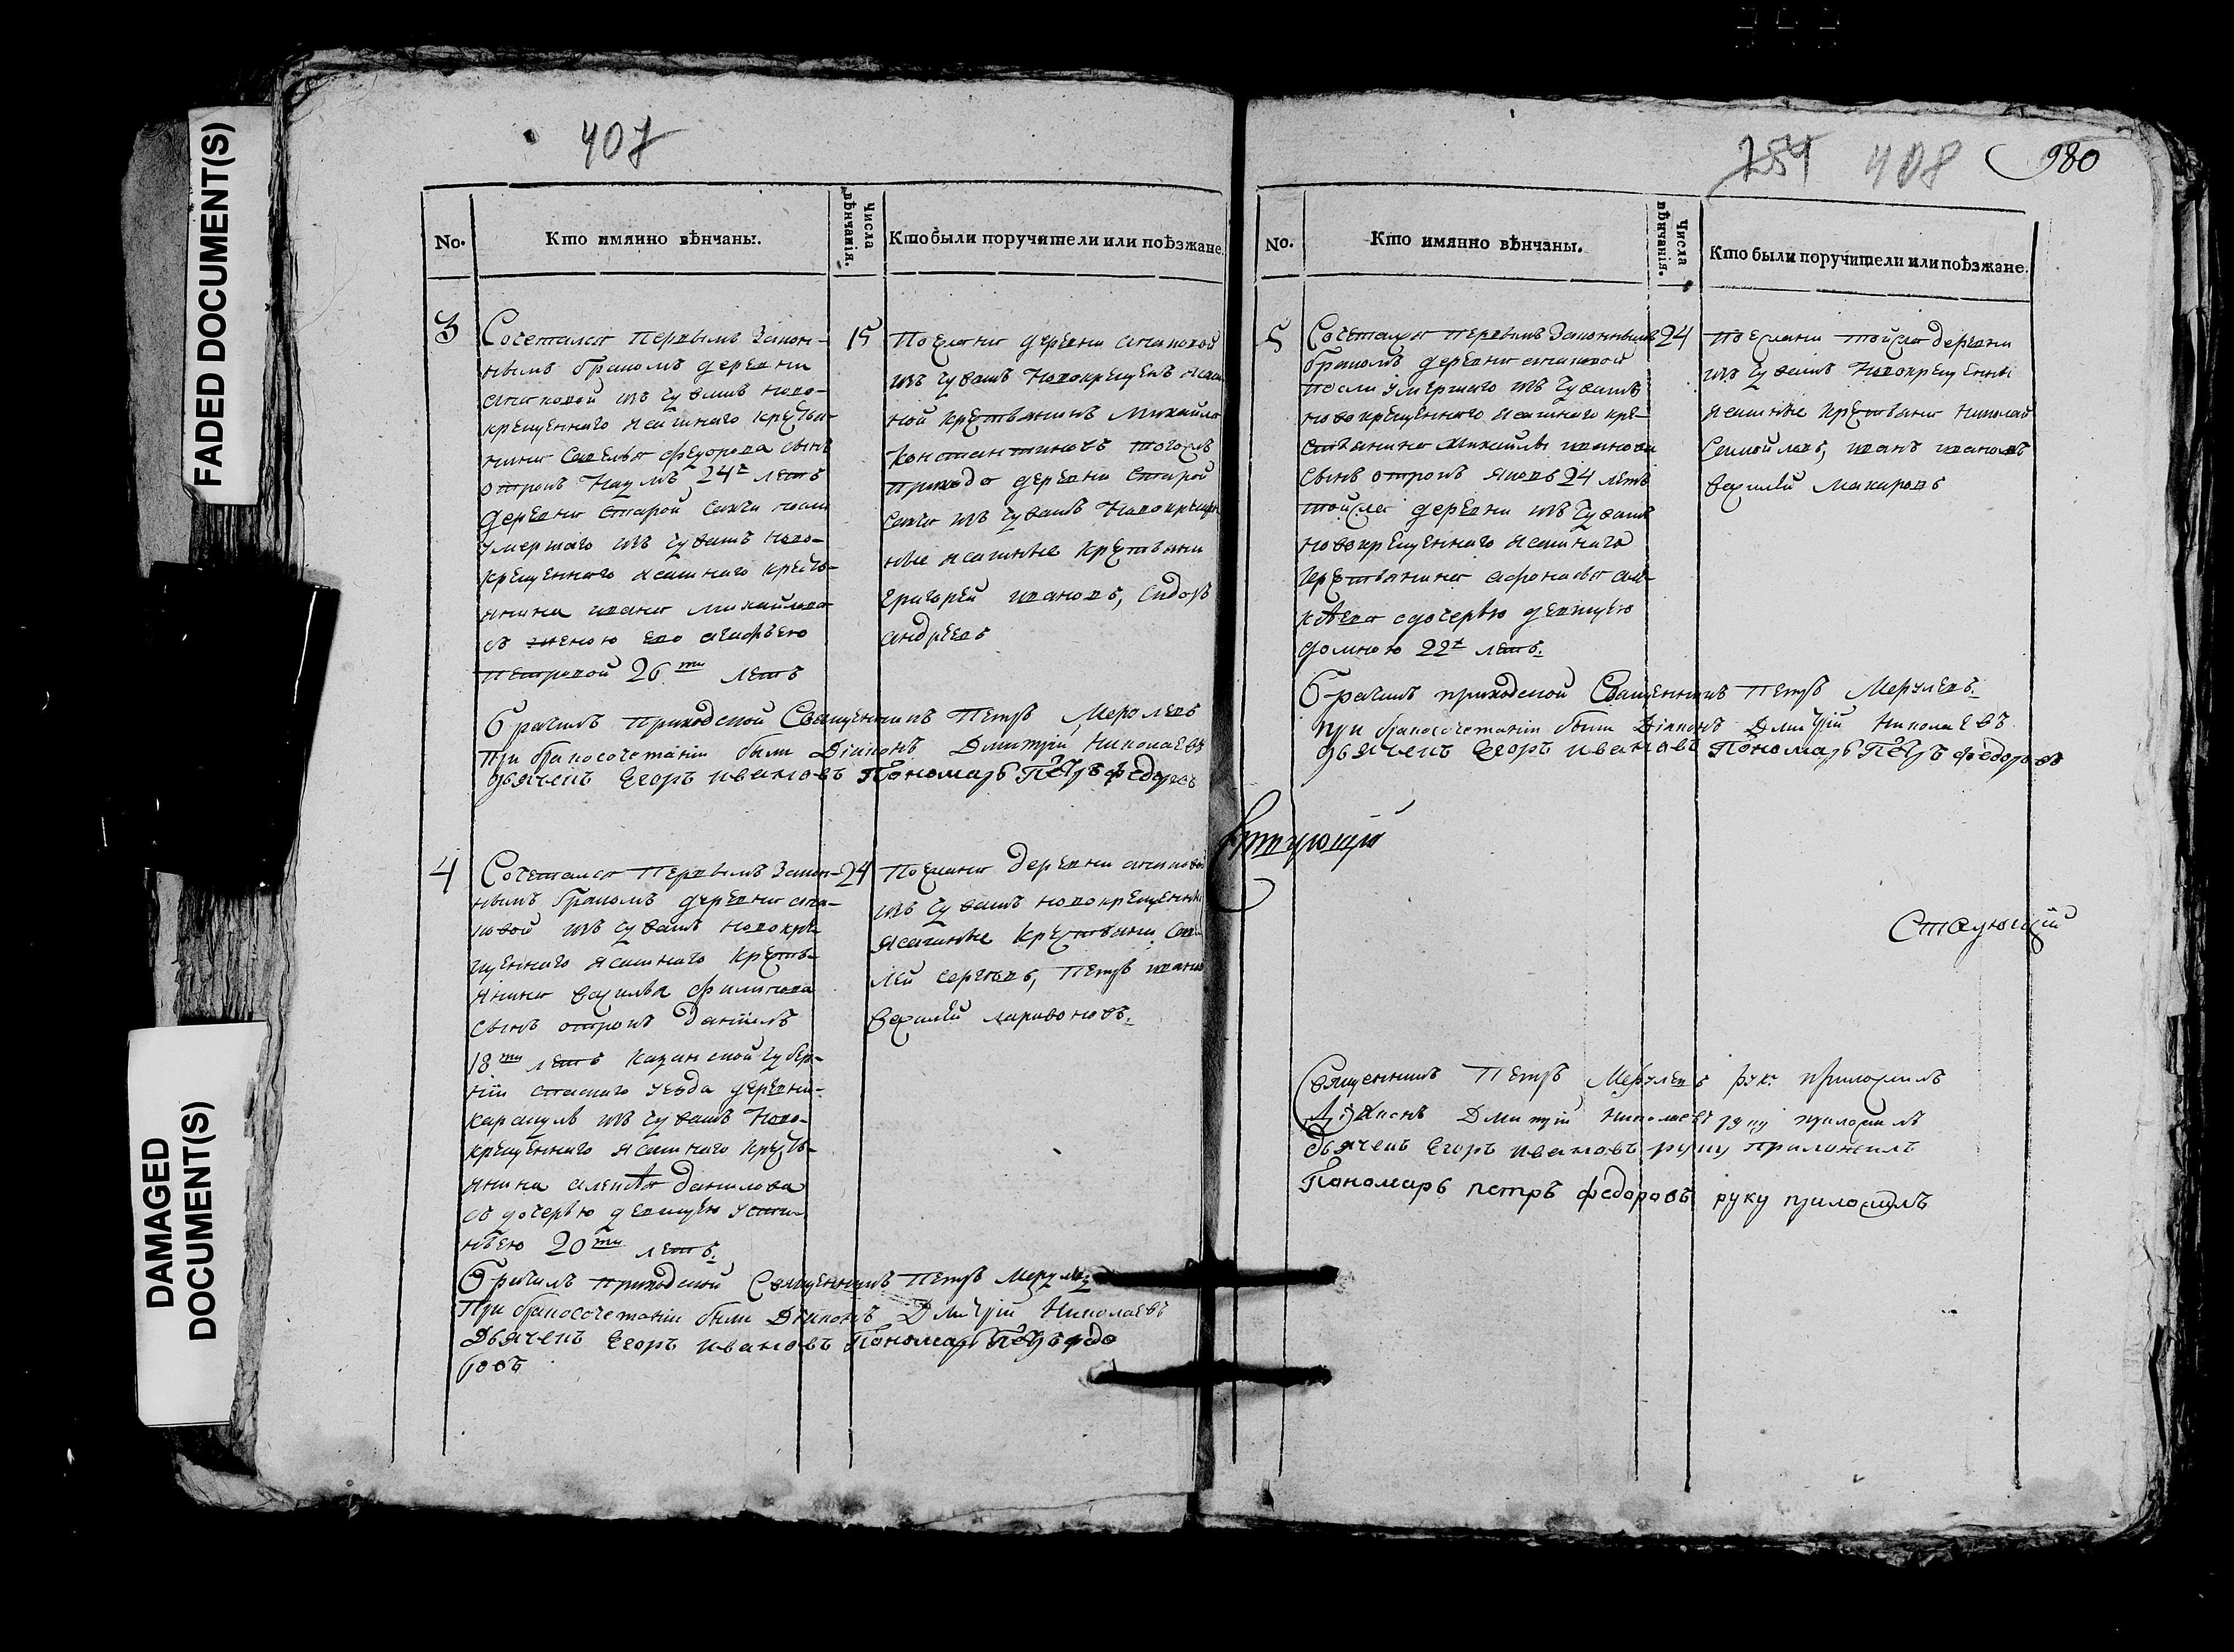 FADED DOCUMENT(S)
DAMAGED
DOCUMENT(S)
407
No.
Кто имянно вѣнчаны.
Числа вѣнчанія.
Кто были поручители или поѣзжане.
3
Сочетался первымъ закон-
нымъ бракомъ деревни
из чувашъ ново-
крещеннаго ясашнаго крестья-
нина Савелья Федорова сынъ
отрокъ Наумъ 24х летъ
деревни Старой Сахчи после
умершаго из чувашъ ново-
крещеннаго ясашнаго кресть-
янина Ивана Михайлова
съ женою ево Агафьею
Петровой 26ти летъ
15
Поезжане деревни
из чувашъ новокрещенъ
крестьянинъ Михайла
Константиновъ тогожъ
прихода деревни Старой
Сахчи из чувашъ
ясашные крестьяни
Григорей Ивановъ, Сидоръ
Андреевъ
Брачилъ приходской Священникъ Петръ
При бракосочетаніи были Діаконъ Дмитрій Николаевъ
дьячекъ Егоръ Ивановъ Пономарь Петръ Федоровъ
4
Сочетался первымъ закон-
нымъ бракомъ деревни
из чувашъ новокре-
щеннаго ясашнаго кресть-
янина Василья Филипова
сынъ отрокъ Даниилъ
18ти летъ Казанской губер-
нии Спаскаго уезда деревни
из чувашъ ново-
крещеннаго ясашнаго кресть-
янина Алексея Данилова
съ дочерью девицею Усти-
ньею 20ти летъ.
24
Поезжане деревни
из чувашъ новокрещенные
ясашные крестьяни
Сергеевъ, Петръ Ивановъ
Василий Ларивоновъ.
Брачилъ приходской Священникъ Петръ
При бракосочетаніи были Діаконъ Дмитрій Николаевъ
Дьячекъ Егоръ Ивановъ Пономарь Петръ Федо
ровъ
284 408 980
No.
Кто имянно вѣнчаны.
Числа вѣнчанія.
Кто были поручители или поѣзжане.
5
Сочетался первымъ законнымъ
бракомъ деревни
после умершаго из чувашъ
новокрещеннаго ясашнаго кре-
стьянина Михайлы Иванова
сынъ отрокъ Яковъ 24 летъ
тойже деревни из чувашъ
новокрещеннаго ясашнаго
крестьянина Афонасья Але-
ксеева с дочерью девицею
Домною 22х летъ.
24
Поезжани тойже деревни
из чувашъ новокрещенны
ясашные крестьяни Николай
Самойловъ, Иванъ Ивановъ
Василий Макаровъ
Брачилъ приходской Священникъ Петръ
при бракосочетаніи были Діаконъ Дмитрій Николаевъ
дьячекъ Егоръ Ивановъ Пономарь Петръ Федоровъ
Священникъ Петръ рук. приложилъ
Діаконъ Дмитрій Николаевъ руку приложилъ
Дьячекъ Егоръ Ивановъ руку приложилъ
Пономарь Петръ Федоровъ руку приложилъ